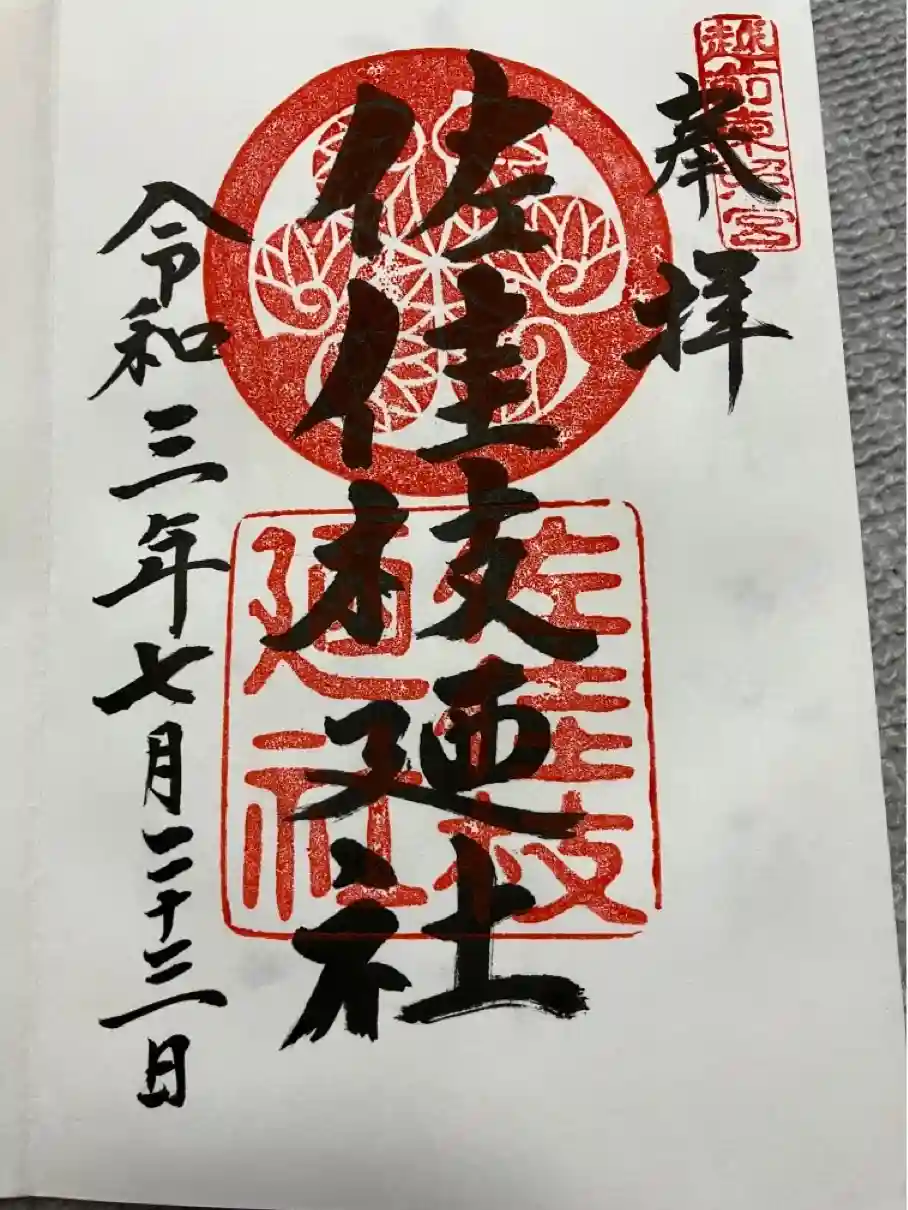 越前東照宮
奉拝
佐佳枝廼社
佐佳枝廼社
令和三年七月二十三日